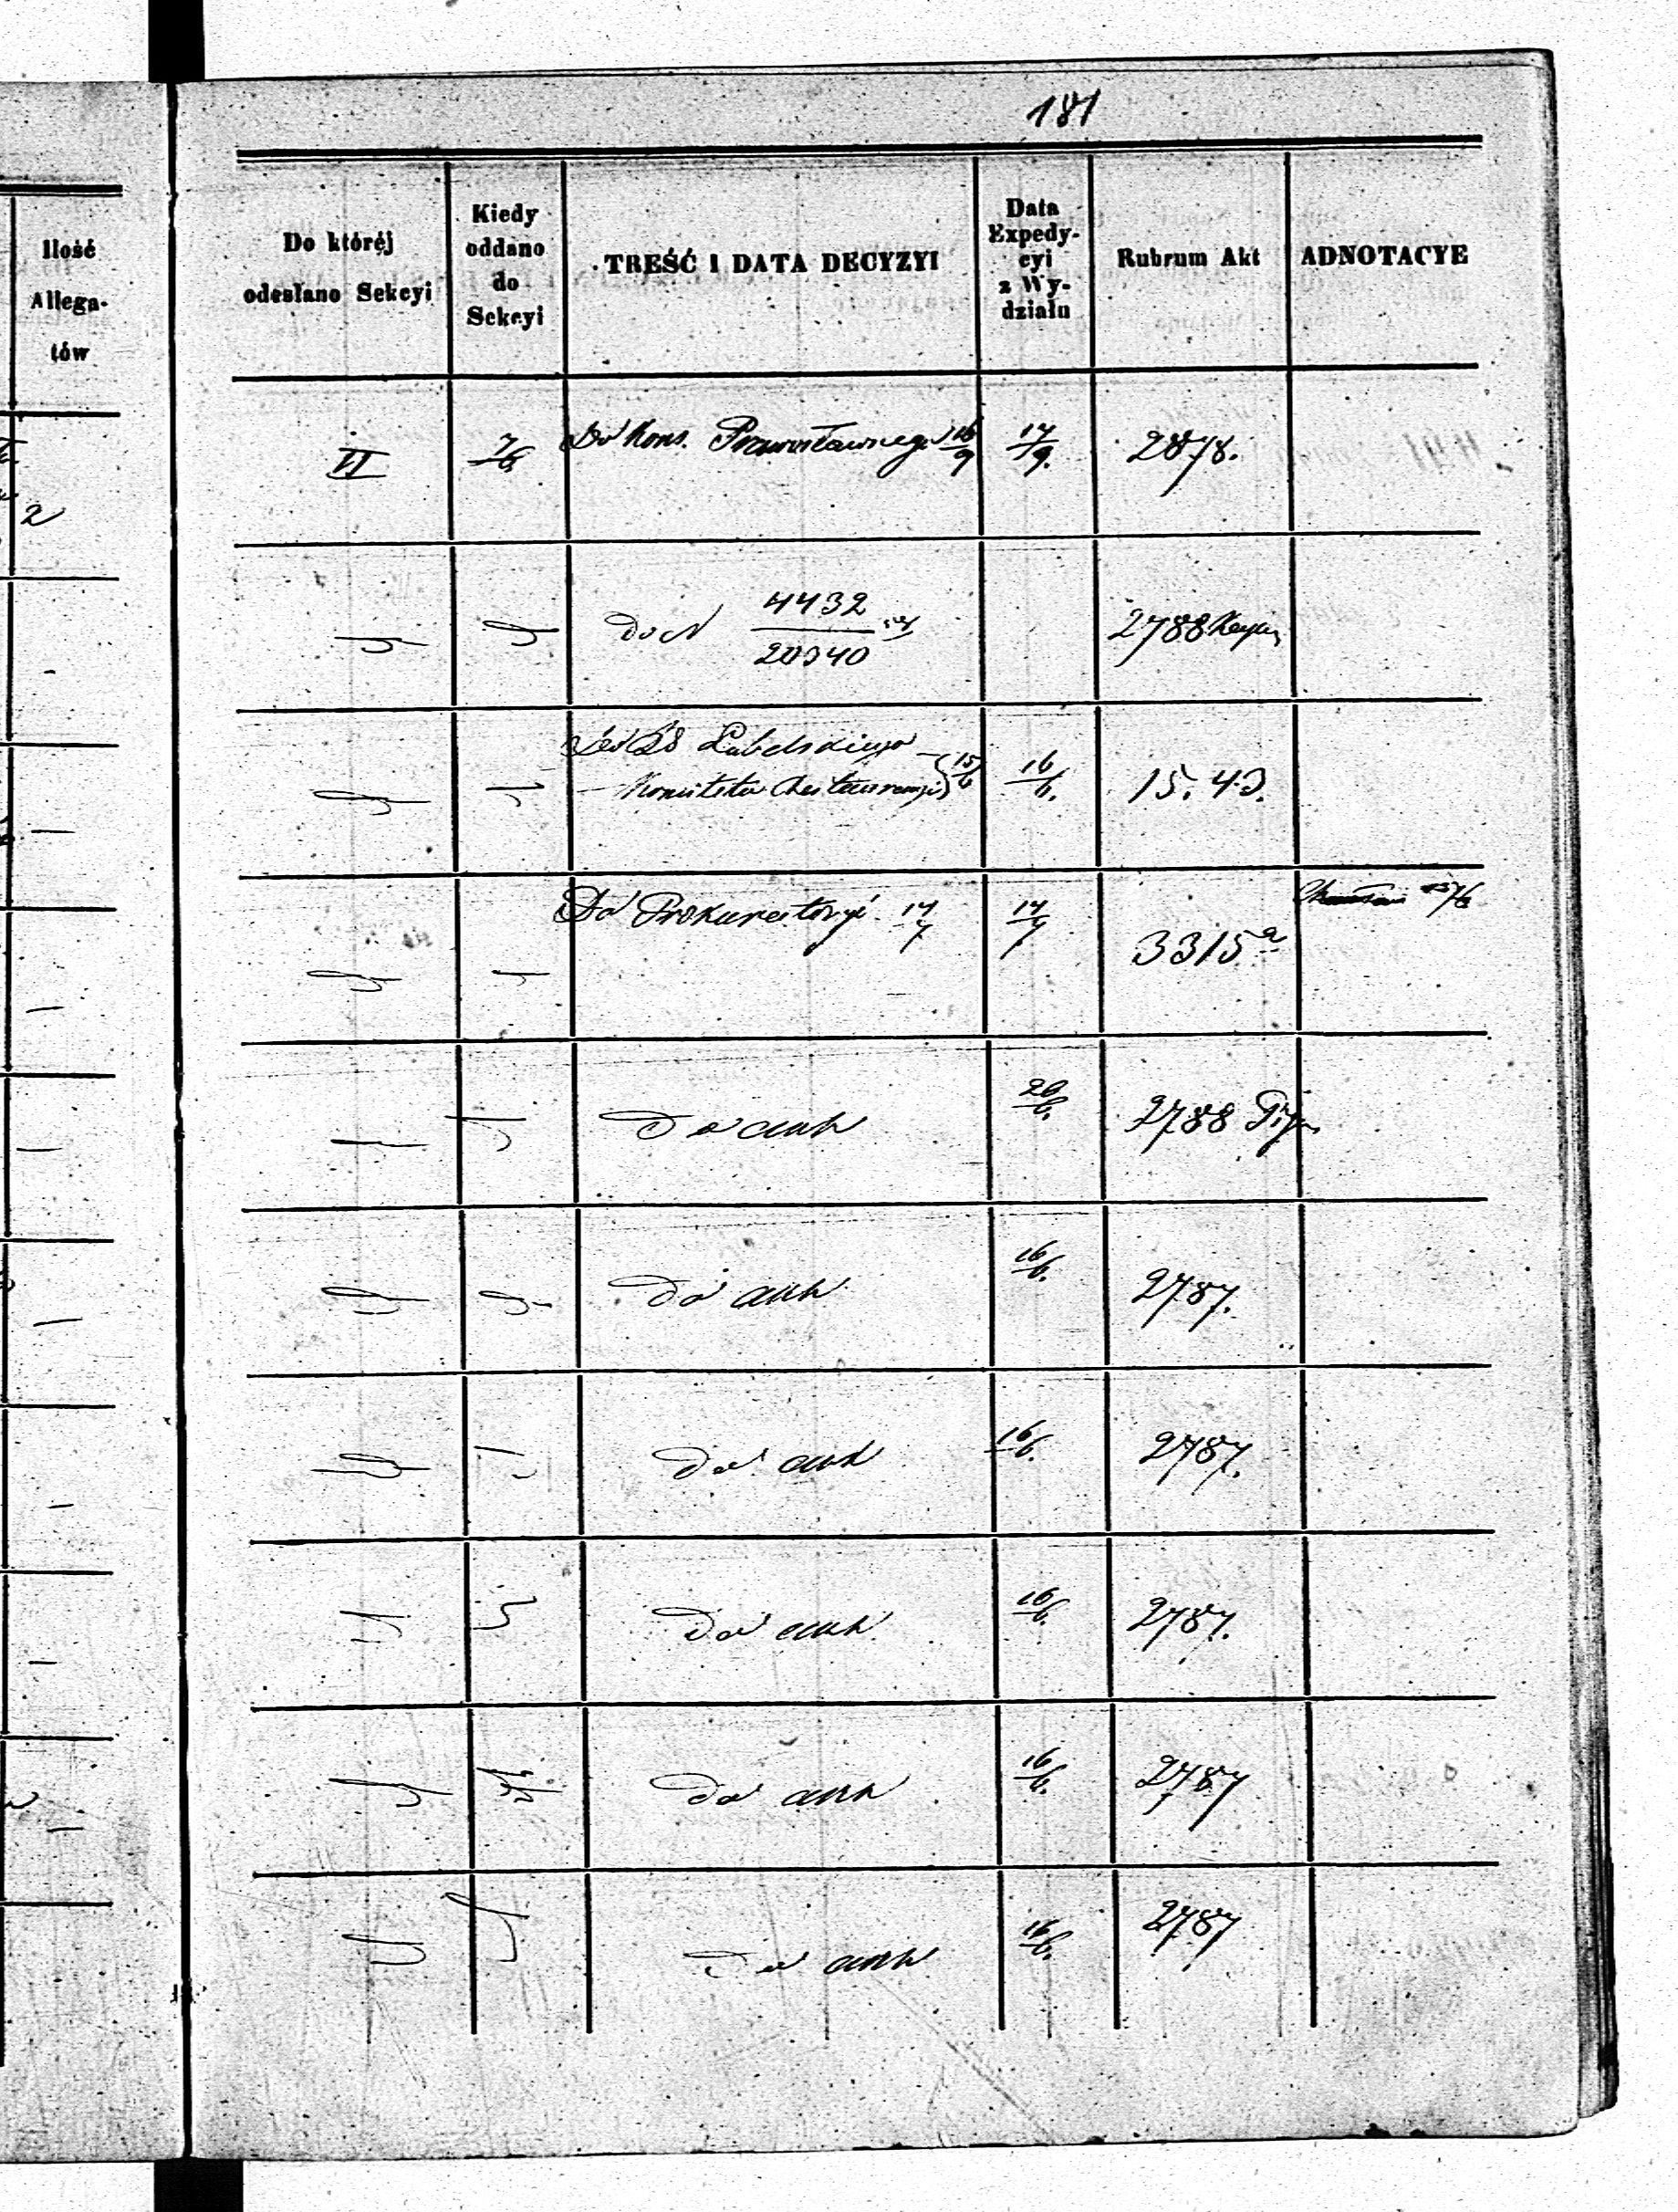 181
Ilość
Allega-
tów
Do któréj
odesłano Sekcyi
Kiedy
oddano
do
Sekcyi
TREŚĆ I DATA DECYZYI
Data
Expedy-
cyi
z Wy-
działu
Rubrum Akt
ADNOTACYE
2
VI
7/6
Do Kons. Prawosławnego 16/9
17/9.
2878.
Do N 4432/20340
2788
Lubelskiego
Komiteta 15/6
16/6.
15. 43.
Do Prokuratoryi 17/7
17/7
3315 a
Do akt
20/6.
2788
Do akt
16/6.
2787.
Do akt
16/6.
2787.
Do akt
16/6.
2787.
Do akt
16/6.
2787
Do akt
16/6.
2787